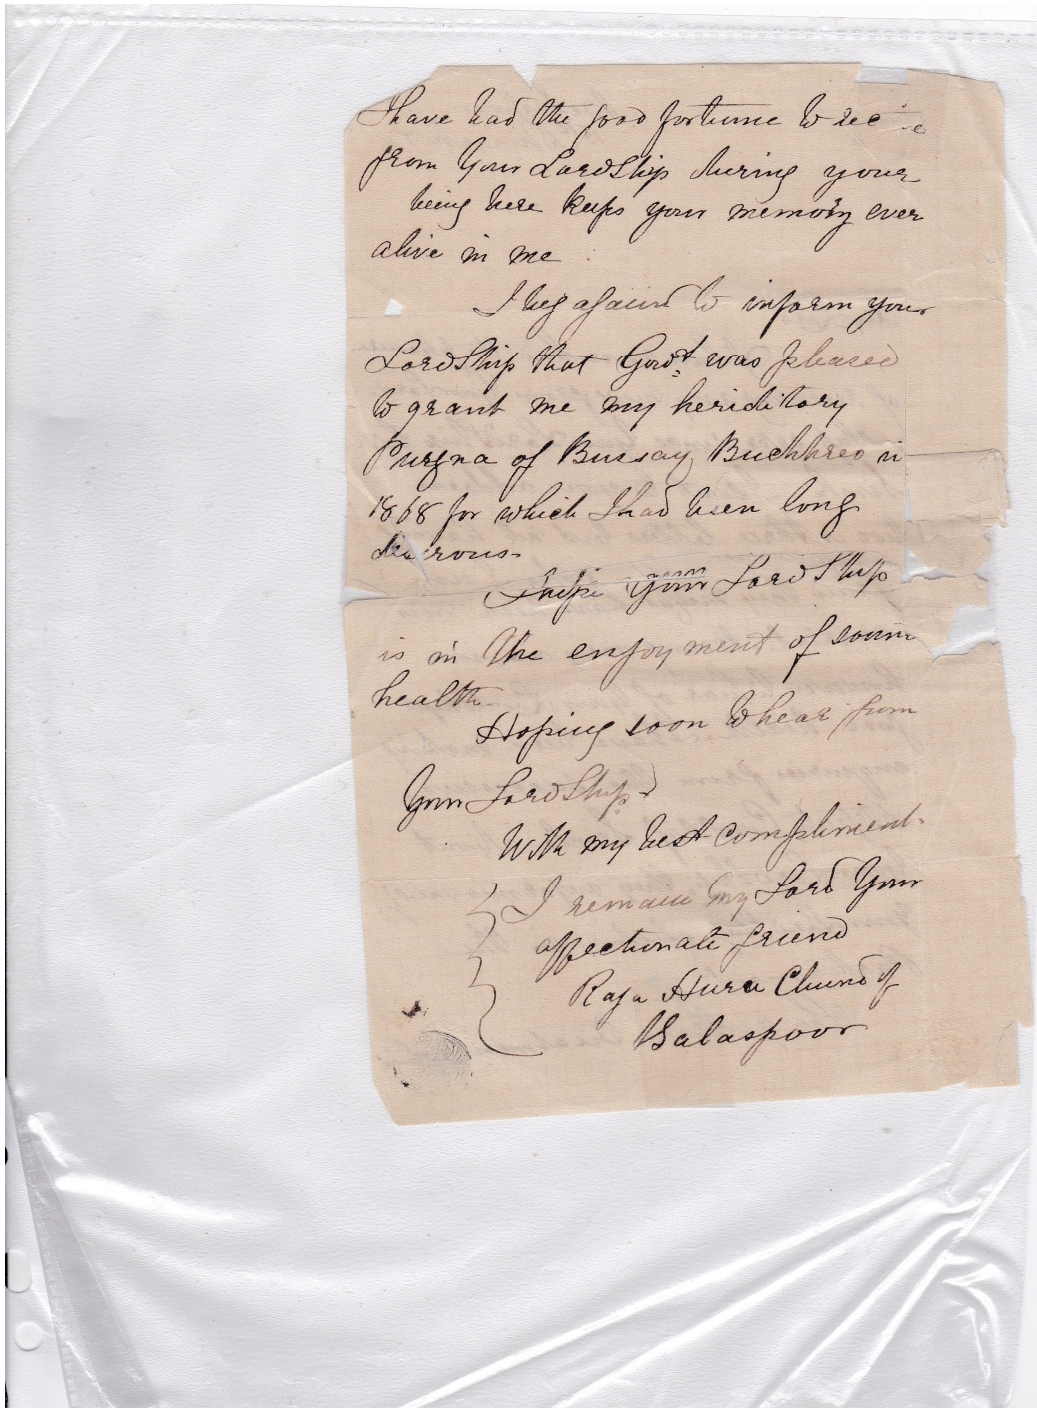 I have had the good fortune to rece e
from Your LordShip during your
being here keeps your memory ever
alive in me
I beg again to inform your
LordShip that Govt. was pleased
to grant me my heriditary
Purgna of Bussay Buchhreo in
1868 for which I had been long
desirous-
I hope your LordShip
is in the enjoyment of soun
health-
Hoping soon to hear from
Your LordShip
With my best compliment.
I remain my Lord Your
affectionate friend
Raja Hura Chund of
Balaspoor